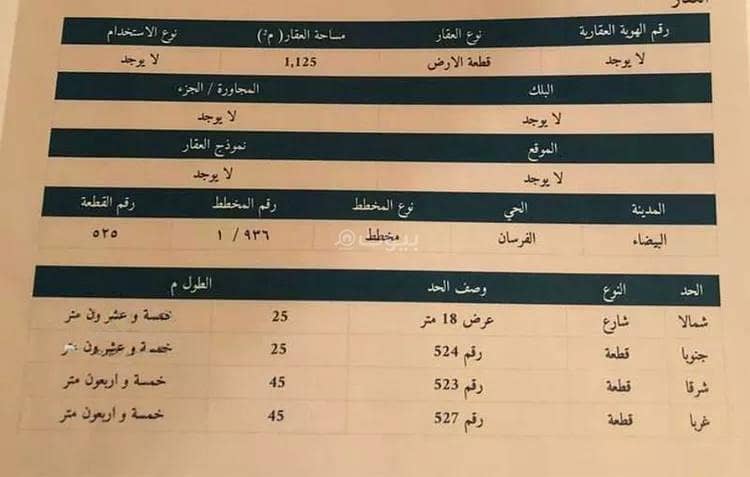 العقار
رقم الهوية العقارية نوع العقار مساحة العقار( م²) نوع الاستخدام
لا يوجد قطعة الارض 1,125 لا يوجد
البلك المجاورة / الجزء
لا يوجد لا يوجد
الموقع نموذج العقار
لا يوجد لا يوجد
المدينة الحي نوع المخطط رقم المخطط رقم القطعة
البيضاء الفرسان مخطط ٩٣٦/ ١ ٥٢٥
بيوت
الحد النوع وصف الحد الطول م
شمالا شارع عرض 18 متر 25 خمسة و عشرون متر
جنوبا قطعة رقم 524 25 خمسة و عشرون متر
شرقا قطعة رقم 523 45 خمسة و اربعون متر
غربا قطعة رقم 527 45 خمسة و اربعون متر